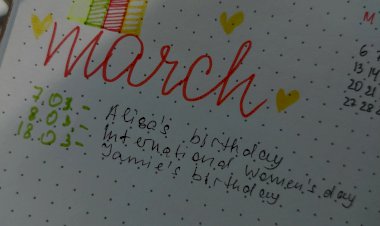 march
7.03 - Alisa's birthday
8.03 - International Women's day
18.03 - Jamie's birthday
M
6 7
13 14
20 21
27 28